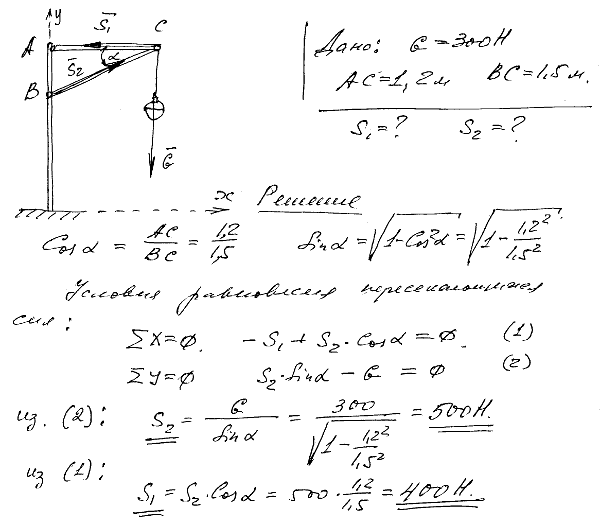 y
S̅₁
C
A
S̅₂
α
B
G̅
x
Дано: G = 300Н
AC = 1,2м BC = 1,5м.
S₁ = ? S₂ = ?
Решение
Cos α = AC/BC = 1,2/1,5 Sin α = √(1-Cos²α) = √(1 - 1,2²/1,5²)
Условия равновесия пересекающихся
сил:
ΣX = 0. -S₁ + S₂·Cos α = 0. (1)
ΣY = 0 S₂·Sin α - G = 0 (2)
из. (2): S₂ = G/Sin α = 300/√(1 - 1,2²/1,5²) = 500Н.
из (1):
S₁ = S₂·Cos α = 500·1,2/1,5 = 400Н.